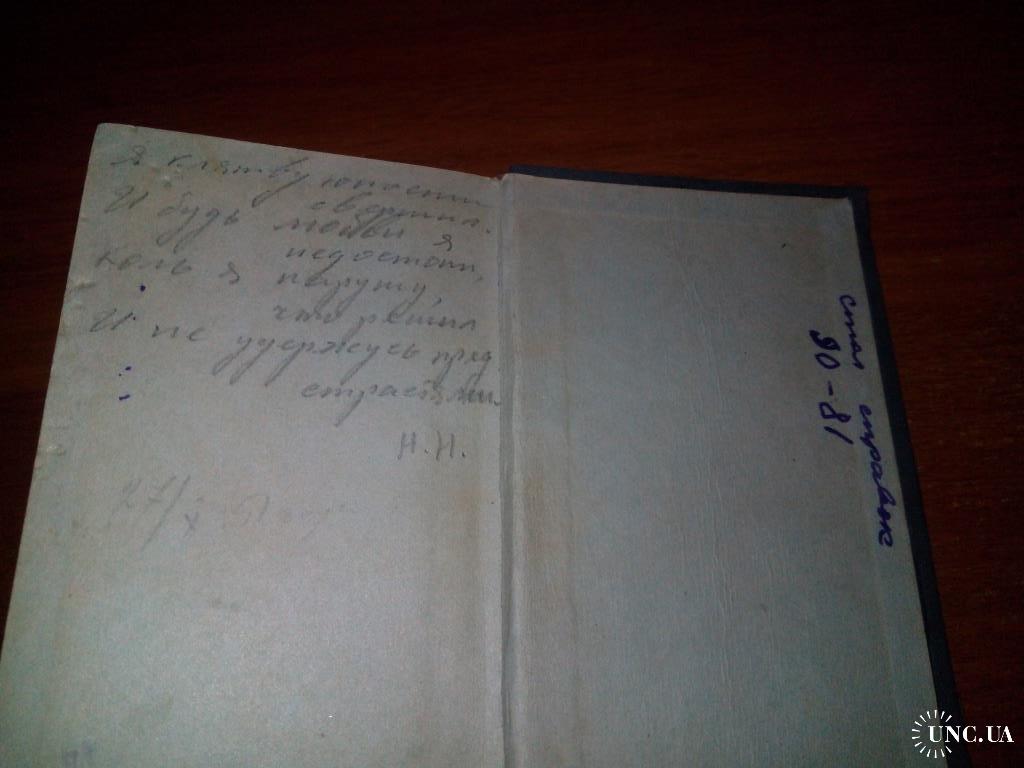 Я клятву юности
свершил.
И будь любви я
недостоин,
Коль я нарушу,
что решил
И не удержусь пред
страстями.
Н.Н.
27/X
стол справок
90-81
UNC.UA